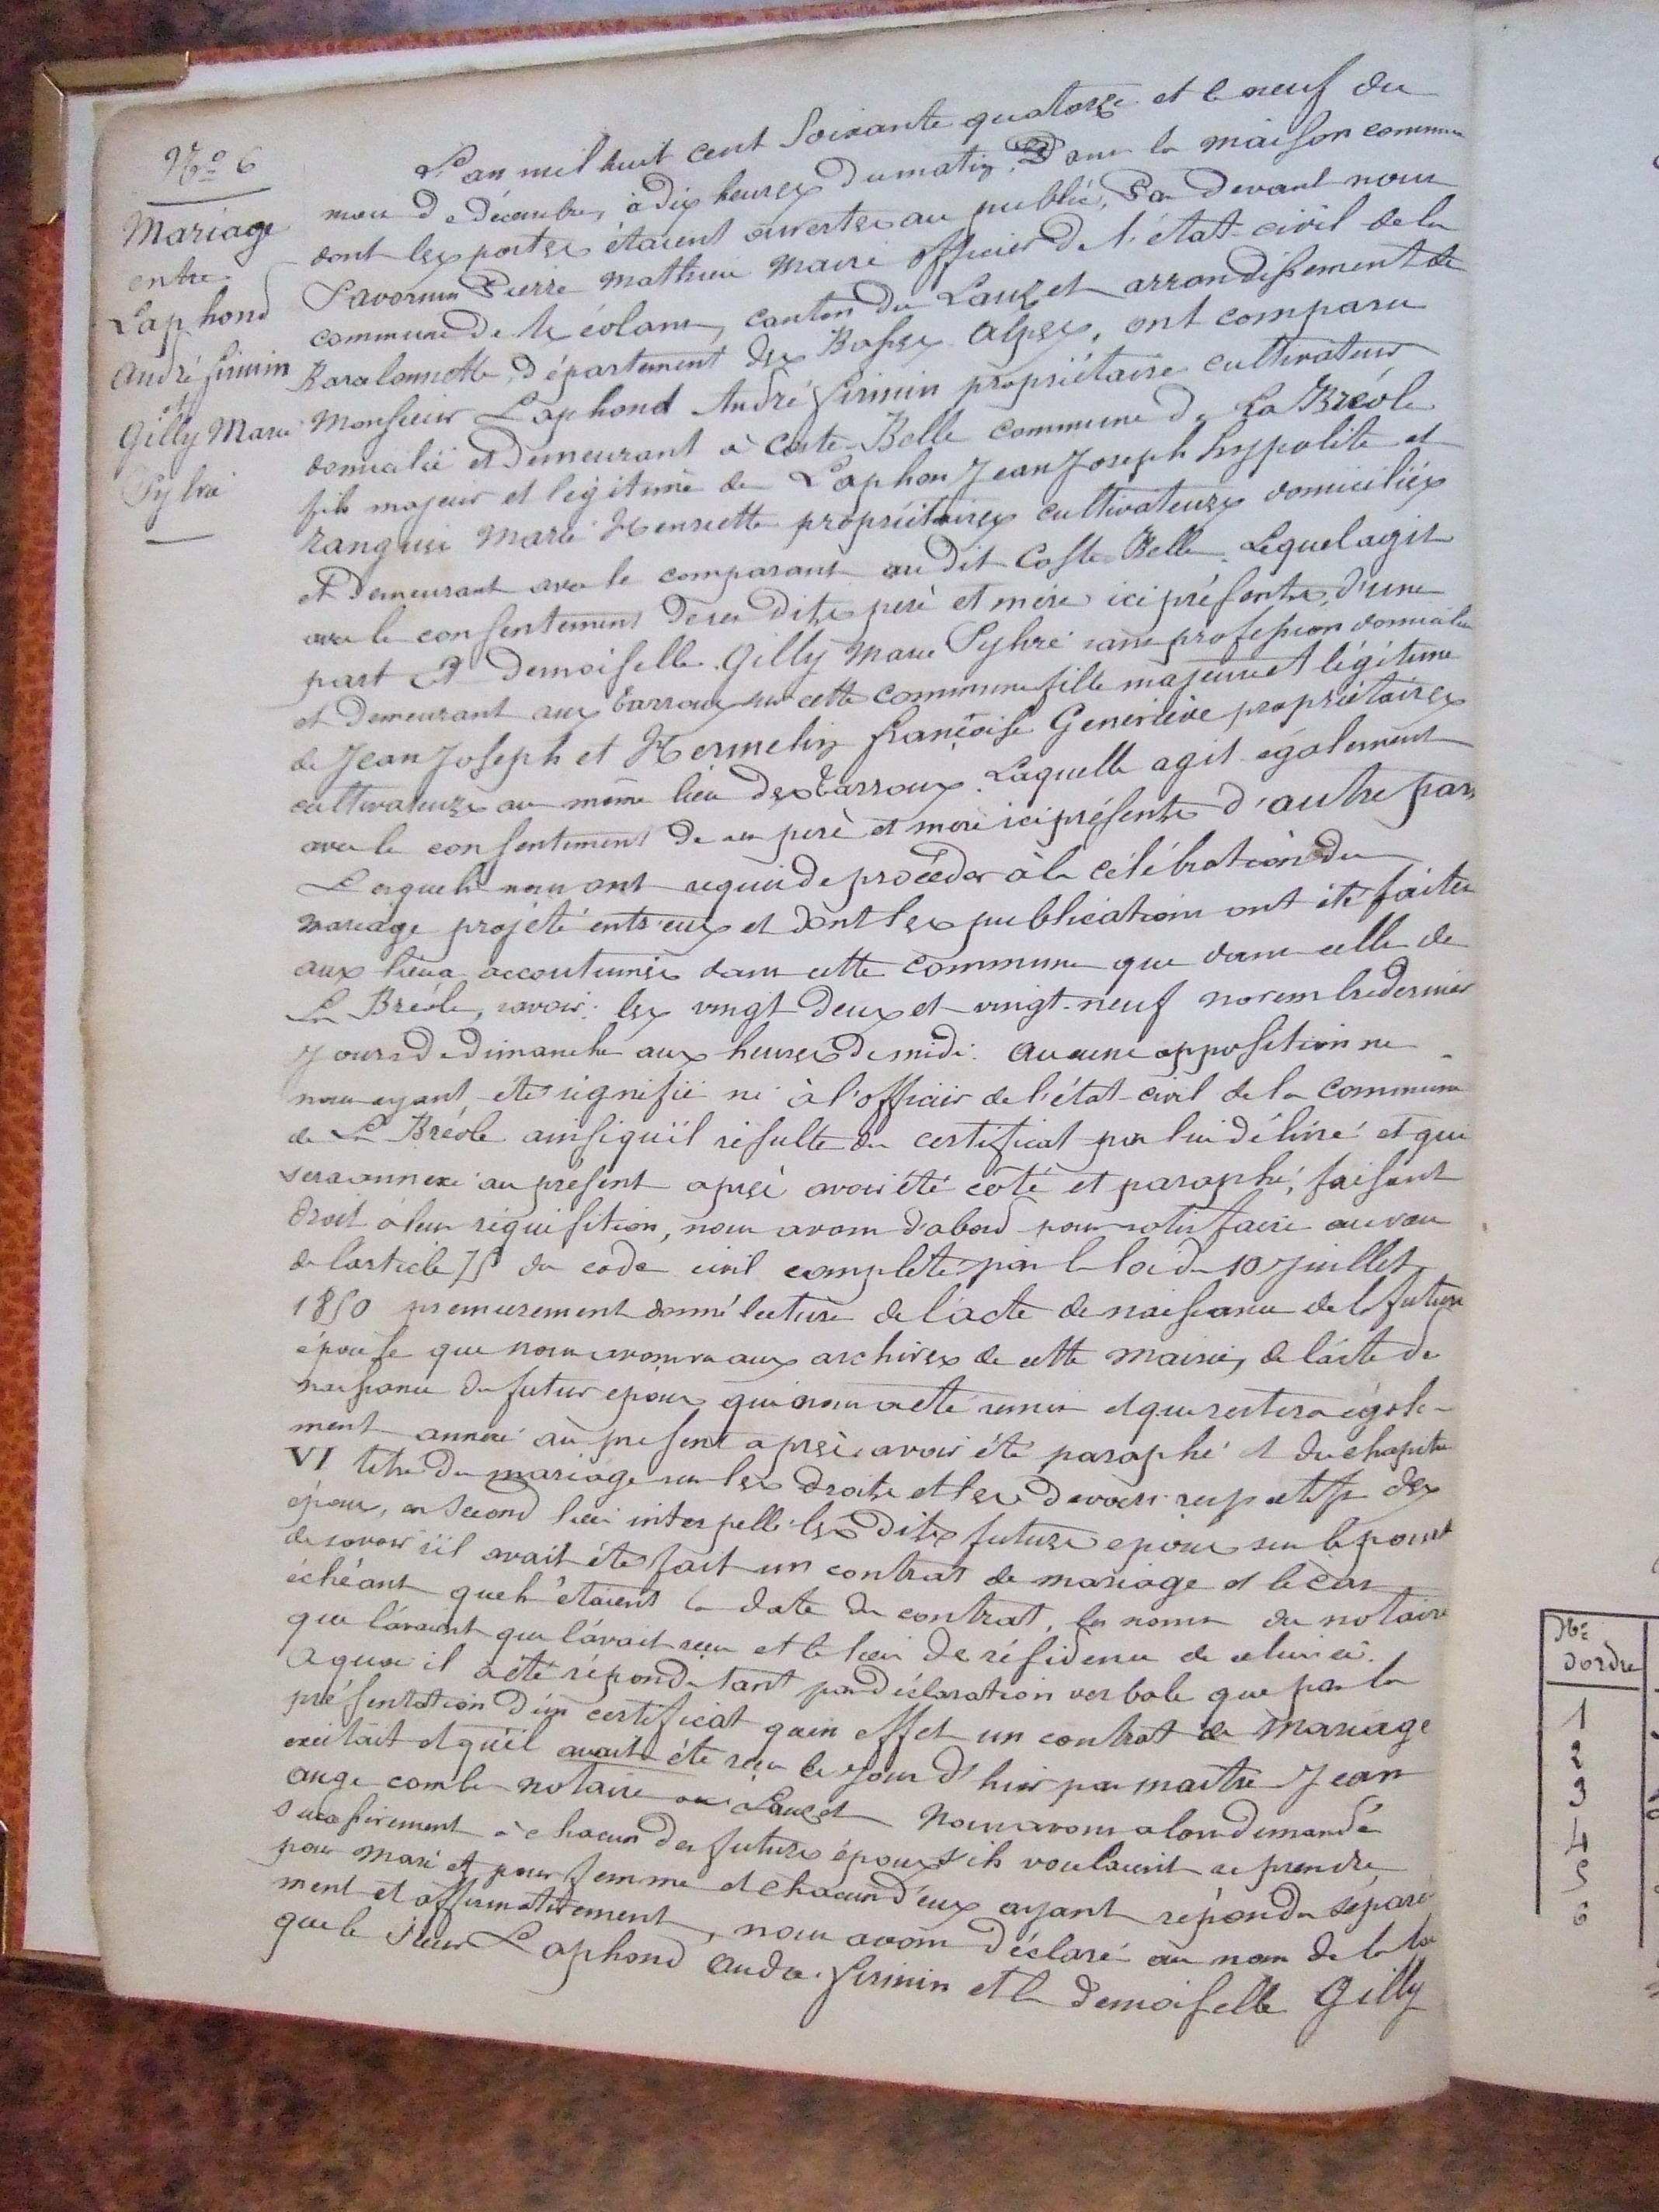 N° 6
Mariage
entre
Laphond
André firmin
et
Gilly Marie
Sylvie
L'an mil huit cent Soixante quatorze et le neuf du
mois de décembre, à dix heures du matin, Dans la maison commune
dont les portes étaient ouvertes au public, Par devant nous
Savornin Pierre Mathieu Maire officier de l'état-civil de la
commune de Méolans, canton du Lauzet arrondissement de
Barcelonnette, département des Basses Alpes, ont comparu
Monsieur Laphond André firmin propriétaire cultivateur
domicilié et demeurant à Coste-Belle commune de La Bréole
fils majeur et légitime de Laphon Jean Joseph hypolite et
Ranguis Marie Henriette propriétaires cultivateurs domiciliés
et demeurant avec le comparant au dit Coste Belle. Lequel agit
avec le consentement de ses dits père et mère ici présents, d'une
part Et Demoiselle Gilly Marie Sylvie sans profession domiciliée
et demeurant aux tarroux sur cette commune fille majeure et légitime
de Jean Joseph et Hermelin françoise Geneviève propriétaires
cultivateurs au même lieu des tarroux. Laquelle agit également
avec le consentement de ses père et mère ici présents d'autre part
Lesquels nous ont requis de procéder à la célébration du
mariage projeté entr'eux et dont les publications ont été faites
aux lieux accoutumés dans cette commune que dans celle de
La Bréole, savoir: les vingt deux et vingt-neuf novembre dernier
jours de dimanche aux heures de midi. Aucune opposition ne
nous ayant été signifiée ni à l'officier de l'état-civil de la commune
de La Bréole ainsi qu'il résulte du certificat par lui délivré et qui
sera annexé au présent après avoir été coté et paraphé, faisant
droit à leur réquisition, nous avons d'abord pour satisfaire au vœu
de l'article 75 du code civil complété par la loi du 10 Juillet
1850 premièrement donné lecture de l'acte de naissance de la future
épouse que nous avons vu aux archives de cette Mairie, de l'acte de
naissance du futur époux qui nous a été remis et qui restera égale-
ment annexé au présent après avoir été paraphé et du chapitre
VI titre du mariage sur les droits et les devoirs respectifs des
époux, en second lieu interpellé les dits futurs époux sur le point
de savoir s'il avait été fait un contrat de mariage et le cas
échéant quels étaient la date du contrat, les noms du notaire
qui l'avaint qui l'avait reçu et le lieu de résidence de celui-ci.
A quoi il a été répondu tant par déclaration verbale que par la
présentation d'un certificat qu'en effet un contrat de Mariage
existait et qu'il avait été reçu le jour d'hier par maitre Jean
ange combe notaire au Lauzet Nous avons alors demandé
successivement à chacun des futurs époux s'ils voulaient se prendre
pour mari et pour femme et chacun d'eux ayant répondu séparé-
ment et affirmativement, nous avons déclaré au nom de la loi
que le sieur Laphond André firmin et la demoiselle Gilly
N°s
d'ordre
1
2
3
4
5
6